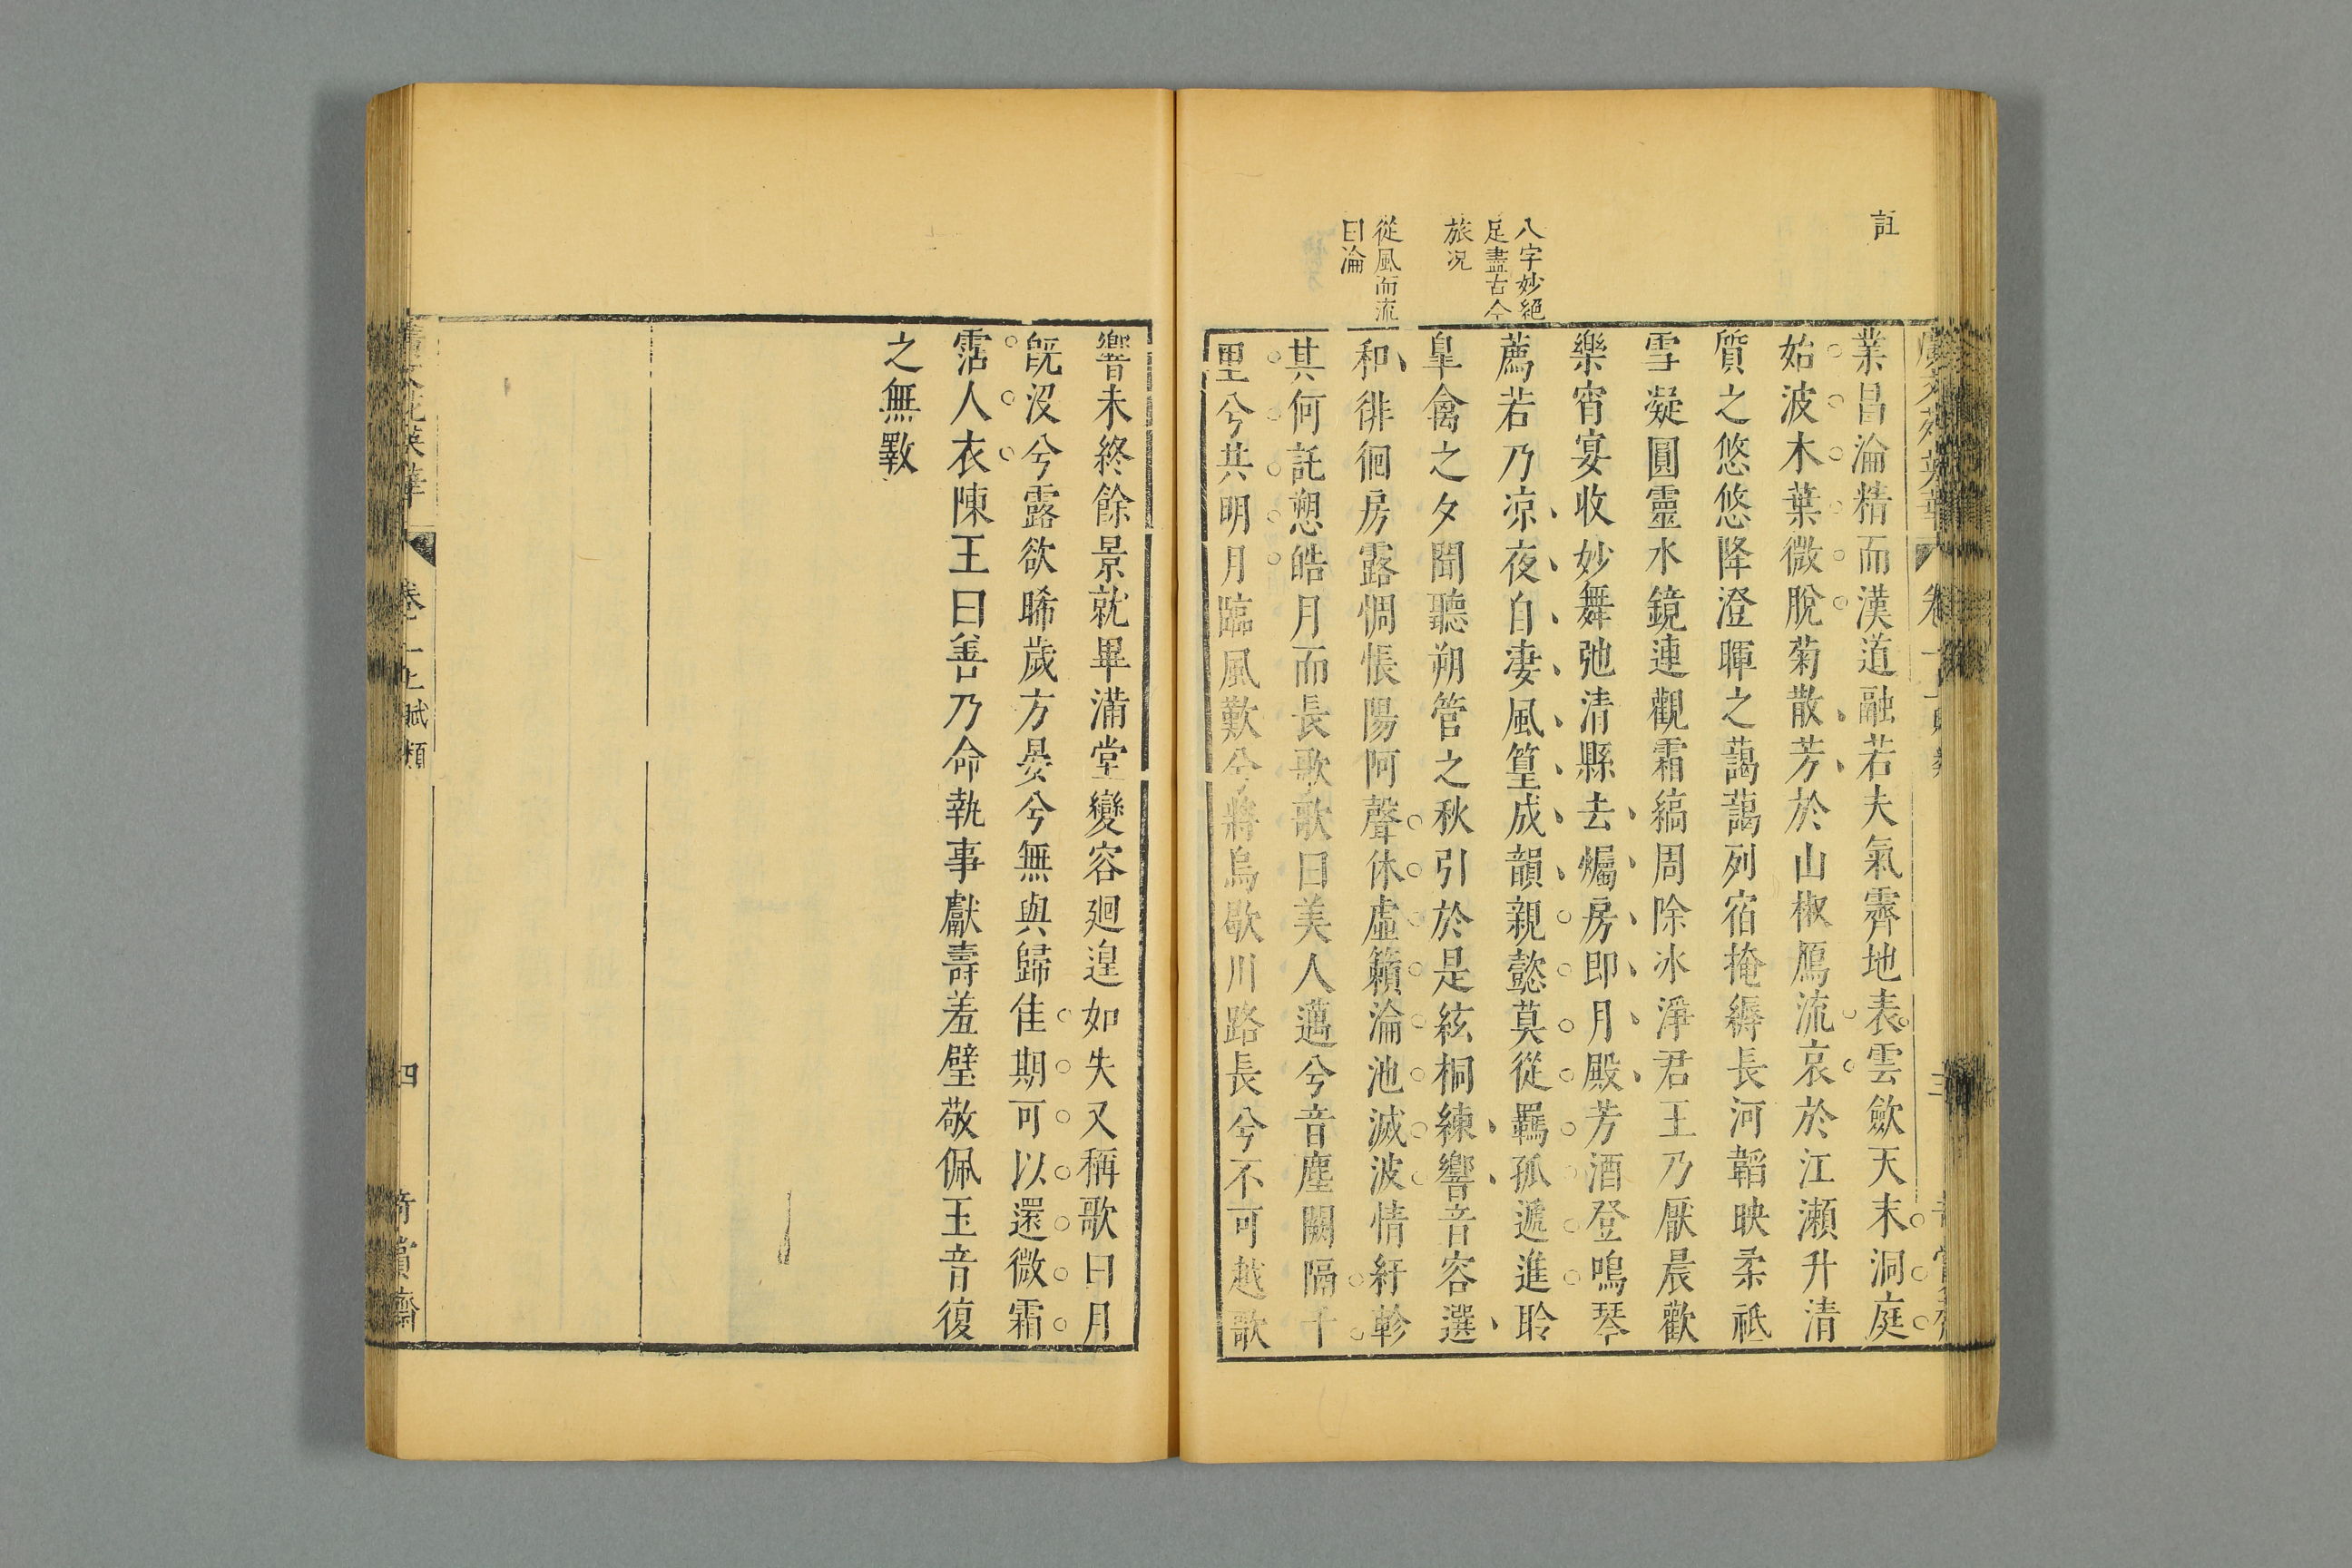 註
八字妙絕
足盡古今
旅况
從風而流
曰淪
業昌淪精而漢道融若夫氣霽地表雲斂天末洞庭
始波木葉微脫菊散芳於山椒鴈流哀於江瀨升清
質之悠悠降澄暉之藹藹列宿掩縟長河韜映柔祇
雪凝圓靈水鏡連觀霜縞周除冰淨君王乃厭晨歡
樂宵宴收妙舞弛清縣去爥房即月殿芳酒登鳴琴
薦若乃凉夜自凄風篁成韻親懿莫從羈孤遞進聆
臯禽之夕聞聽朔管之秋引於是絃桐練響音容選
和徘徊房露惆悵陽阿聲休虛籟淪池滅波情紆軫
其何託愬皓月而長歌歌曰美人邁兮音塵闕隔千
里兮共明月臨風歎兮將焉歇川路長兮不可越歌
響未終餘景就畢滿堂變容廻遑如失又稱歌曰月
旣沒兮露欲晞歲方晏兮無與歸佳期可以還微霜
霑人衣陳王曰善乃命執事獻壽羞璧敬佩玉音復
之無斁
卷一上賦類
四
奇賞齋